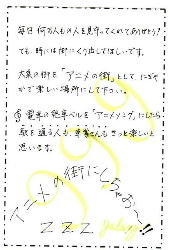 毎日 何万人もの人を見守ってくれてありがとう!
でも、時には街にくり出してほしいです。
大泉の街を「アニメの街」として、にぎや
かで楽しい場所にして下さい。
電車の発車ベルを「アニメソング」にしたら
駅を通る人も、乗客さんもきっと楽しいと
思います。
アニメの街にしちゃお〜!!
ZZZ
galaxy